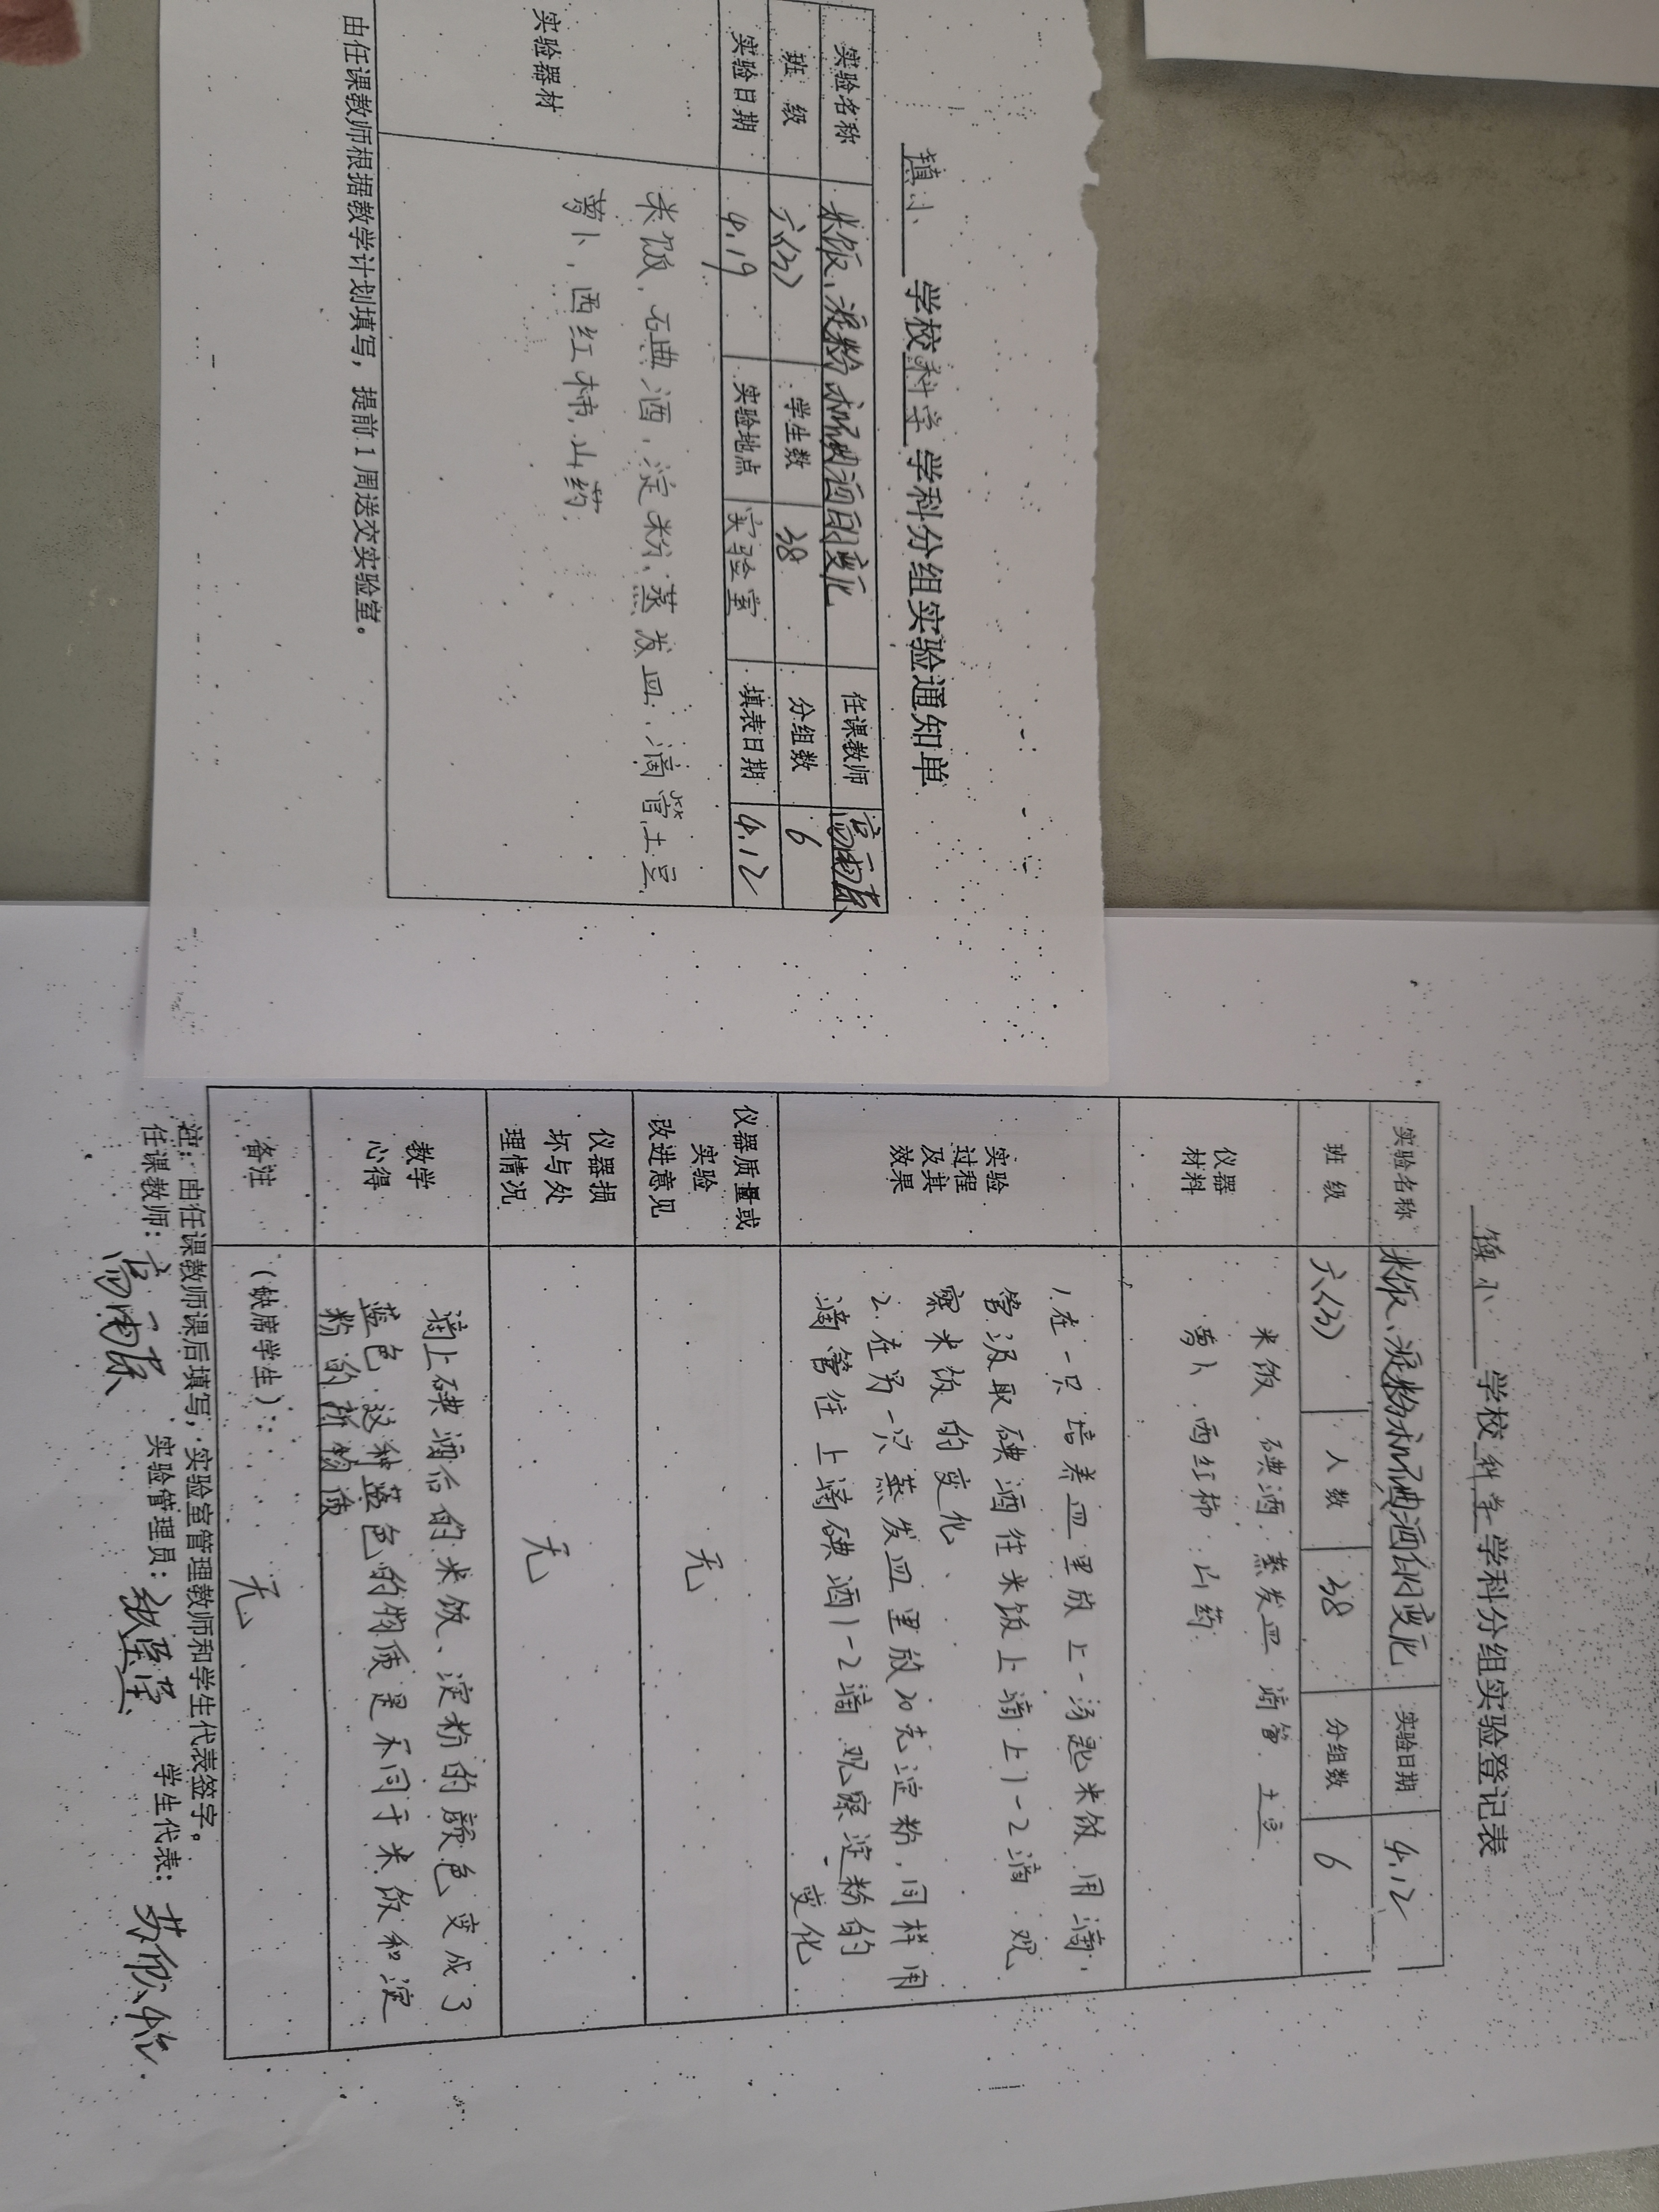 镇小 学校 科学 学科分组实验通知单
实验名称 米饭、淀粉和碘酒的变化 任课教师
班 级 六(3) 学生数 38 分组数 6
实验日期 4.19 实验地点 实验室 填表日期 4.12
实验器材
米饭、碘酒、淀粉、蒸发皿、滴管、土豆、
萝卜、西红柿、山药.
由任课教师根据教学计划填写，提前1周送交实验室。
镇小 学校 科学 学科分组实验登记表
实验名称 米饭、淀粉和碘酒的变化 实验日期 4.12
班 级 六(3) 人 数 38 分组数 6
仪器
材料
米饭、碘酒、蒸发皿 滴管 土豆
萝卜、西红柿、山药
实验
过程
及其
效果
1.在一只培养皿里放上一汤匙米饭 用滴
管汲取碘酒往米饭上滴上1-2滴 观
察米饭的变化
2.在另一只蒸发皿里放20克淀粉,同样用
滴管往上滴碘酒1-2滴 观察淀粉的
变化
仪器质量或
实验
改进意见
无
仪器损
坏与处
理情况
无
教学
心得
滴上碘酒后的米饭、淀粉的颜色变成了
蓝色 这种蓝色的物质是不同于米饭和淀
粉的新物质
备注
(缺席学生): 无
注：由任课教师课后填写，实验室管理教师和学生代表签字。
任课教师: 实验管理员: 学生代表: